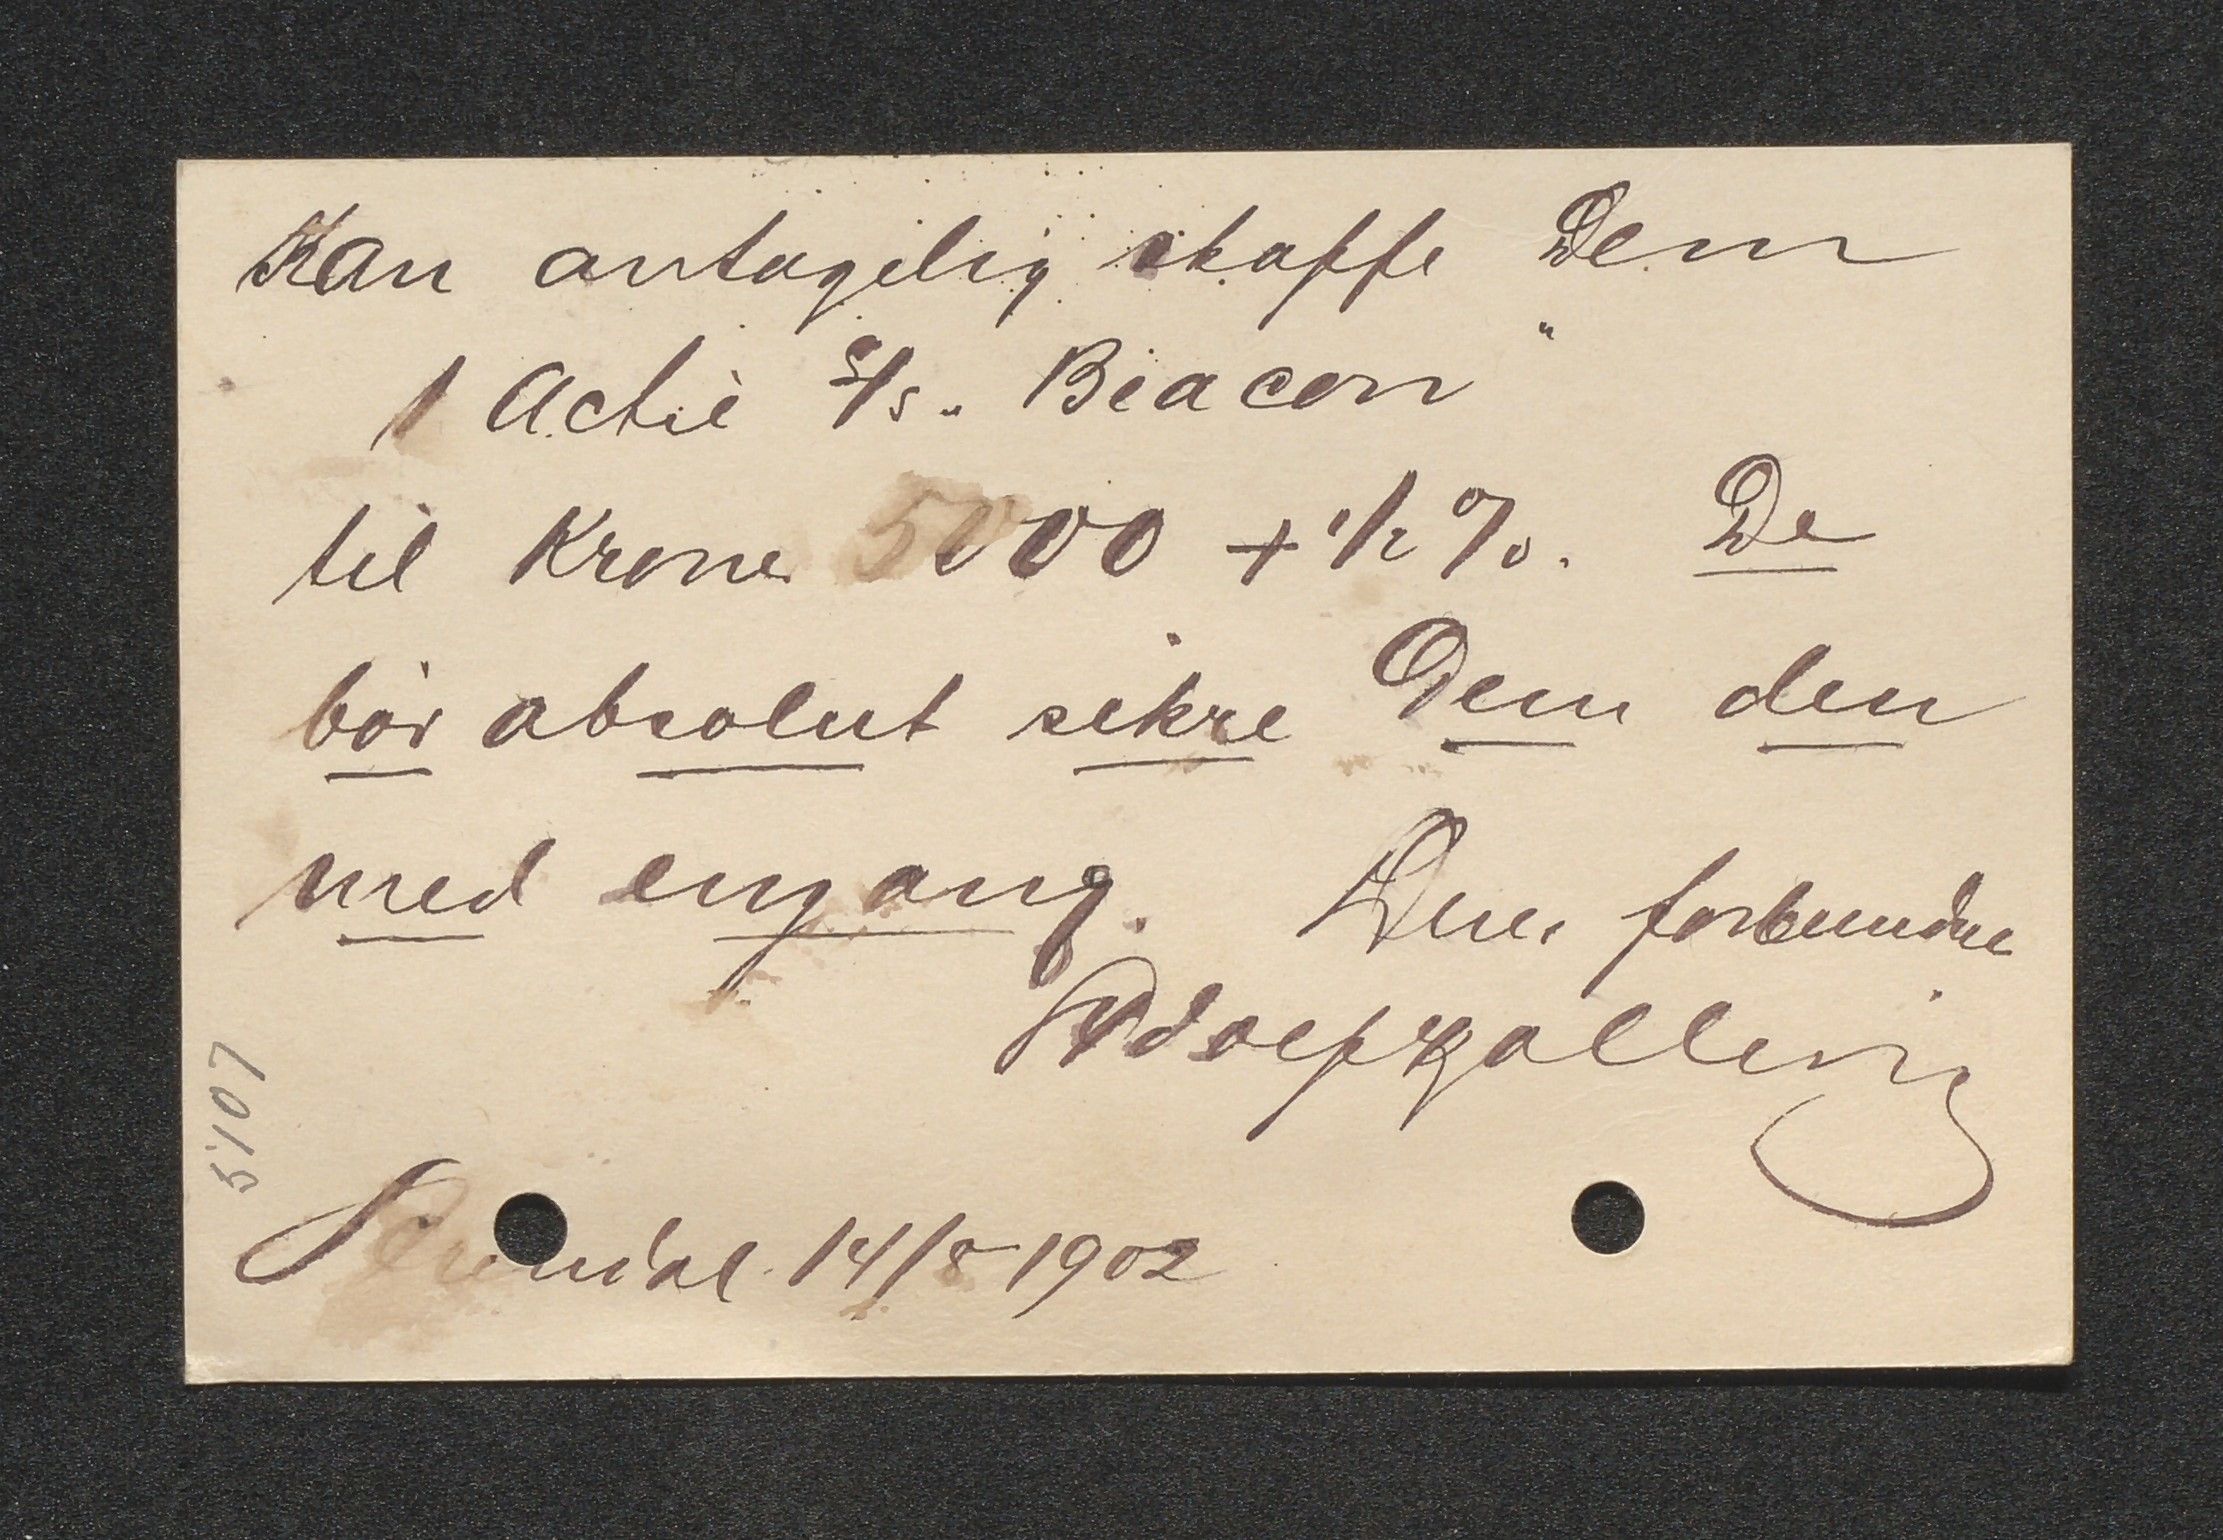 Kan antagelig skaffe Dem
1 Actie S/s „Beacon"
til Kroner 5000 + 1/2 %. De
bör absolut sikre Dem den
med engang. Deres forbundne
Adolf Halling
Arendal 14/8 1902
5107